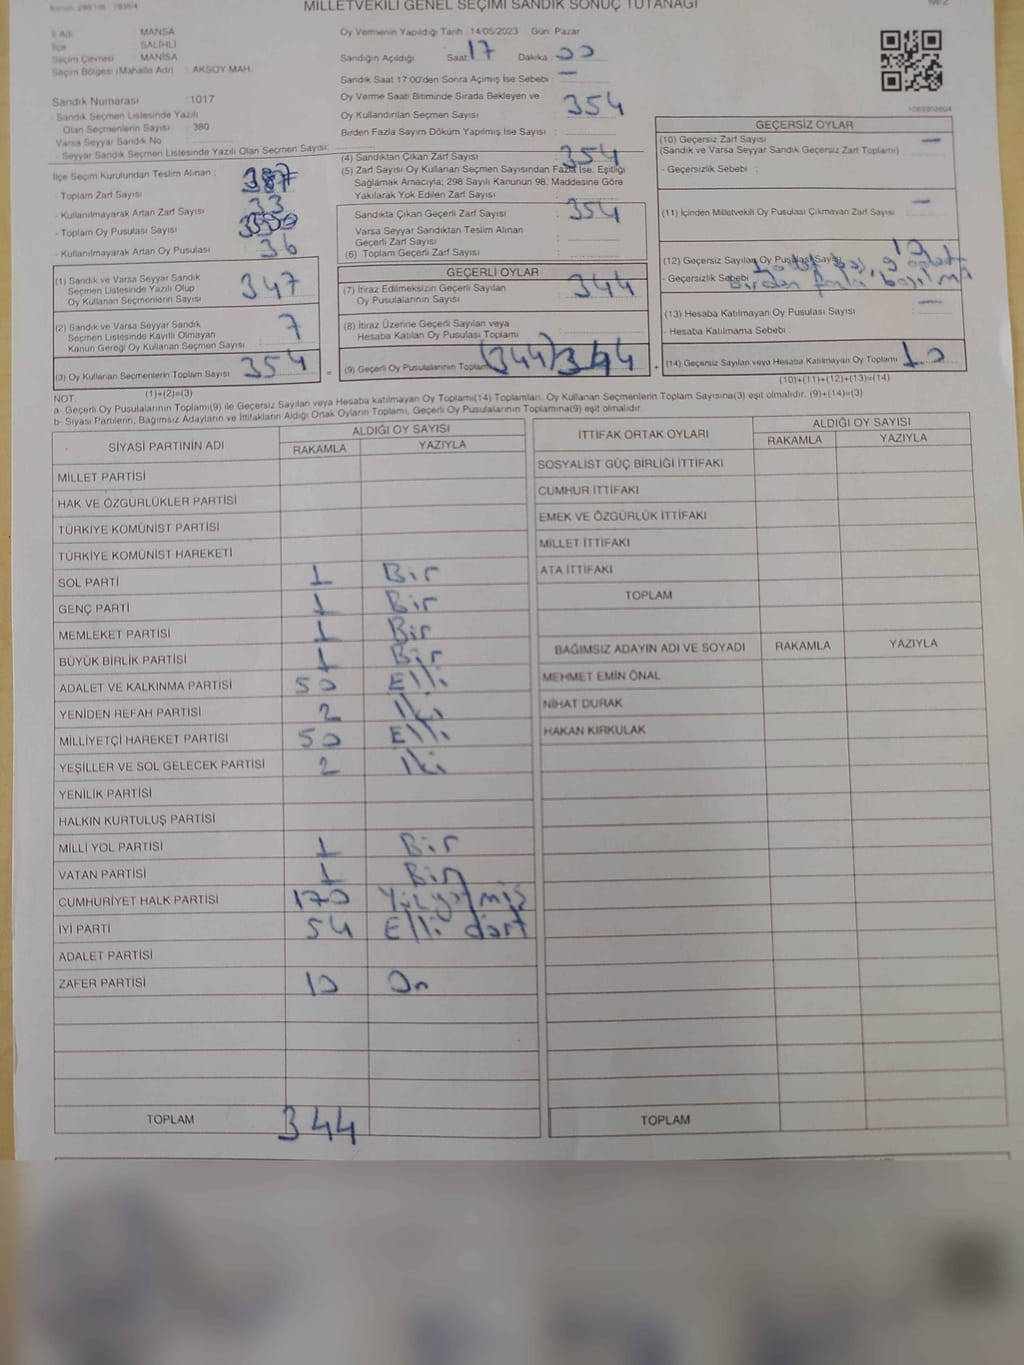 MİLLETVEKİLİ GENEL SEÇİMİ SANDIK SONUÇ TUTANAĞI
İl Adı : MANİSA
İlçe : SALİHLİ
Seçim Çevresi : MANİSA
Seçim Bölgesi (Mahalle Adı) : AKSOY MAH.
Sandık Numarası : 1017
Sandık Seçmen Listesinde Yazılı
Olan Seçmenlerin Sayısı : 380
Varsa Seyyar Sandık No :
Seyyar Sandık Seçmen Listesinde Yazılı Olan Seçmen Sayısı:
İlçe Seçim Kurulundan Teslim Alınan :
- Toplam Zarf Sayısı : 387
- Kullanılmayarak Artan Zarf Sayısı : 33
- Toplam Oy Pusulası Sayısı :
- Kullanılmayarak Artan Oy Pusulası : 36
(1) Sandık ve Varsa Seyyar Sandık
Seçmen Listesinde Yazılı Olup
Oy Kullanan Seçmenlerin Sayısı : 347
(2) Sandık ve Varsa Seyyar Sandık
Seçmen Listesinde Kayıtlı Olmayan
Kanun Gereği Oy Kullanan Seçmen Sayısı : 7
(3) Oy Kullanan Seçmenlerin Toplam Sayısı : 354
(1)+(2)=(3)
Oy Vermenin Yapıldığı Tarih : 14/05/2023 Gün: Pazar
Sandığın Açıldığı Saat : 17 Dakika : 00
Sandık Saat 17:00'den Sonra Açılmış İse Sebebi : —
Oy Verme Saati Bitiminde Sırada Bekleyen ve
Oy Kullandırılan Seçmen Sayısı : 354
Birden Fazla Sayım Döküm Yapılmış İse Sayısı :
(4) Sandıktan Çıkan Zarf Sayısı : 354
(5) Zarf Sayısı Oy Kullanan Seçmen Sayısından Fazla İse, Eşitliği
Sağlamak Amacıyla; 298 Sayılı Kanunun 98. Maddesine Göre
Yakılarak Yok Edilen Zarf Sayısı :
Sandıkta Çıkan Geçerli Zarf Sayısı : 354
Varsa Seyyar Sandıktan Teslim Alınan
Geçerli Zarf Sayısı :
(6) Toplam Geçerli Zarf Sayısı :
GEÇERLİ OYLAR
(7) İtiraz Edilmeksizin Geçerli Sayılan
Oy Pusulalarının Sayısı : 344
(8) İtiraz Üzerine Geçerli Sayılan veya
Hesaba Katılan Oy Pusulası Toplamı :
(9) Geçerli Oy Pusulalarının Toplamı (344) 344
1062802604
GEÇERSİZ OYLAR
(10) Geçersiz Zarf Sayısı : —
(Sandık ve Varsa Seyyar Sandık Geçersiz Zarf Toplamı)
- Geçersizlik Sebebi :
(11) İçinden Milletvekili Oy Pusulası Çıkmayan Zarf Sayısı : —
(12) Geçersiz Sayılan Oy Pusulası Sayısı : 10
- Geçersizlik Sebebi Birden fazla basılmış
(13) Hesaba Katılmayan Oy Pusulası Sayısı : —
- Hesaba Katılmama Sebebi :
(14) Geçersiz Sayılan veya Hesaba Katılmayan Oy Toplamı : 10
(10)+(11)+(12)+(13)=(14)
NOT:
a- Geçerli Oy Pusulalarının Toplamı(9) ile Geçersiz Sayılan veya Hesaba katılmayan Oy Toplamı(14) Toplamları, Oy Kullanan Seçmenlerin Toplam Sayısına(3) eşit olmalıdır. (9)+(14)=(3)
b- Siyasi Partilerin, Bağımsız Adayların ve İttifakların Aldığı Ortak Oyların Toplamı, Geçerli Oy Pusulalarının Toplamına(9) eşit olmalıdır.
SİYASİ PARTİNİN ADI ALDIĞI OY SAYISI
RAKAMLA YAZIYLA
MİLLET PARTİSİ
HAK VE ÖZGÜRLÜKLER PARTİSİ
TÜRKİYE KOMÜNİST PARTİSİ
TÜRKİYE KOMÜNİST HAREKETİ
SOL PARTİ 1 Bir
GENÇ PARTİ 1 Bir
MEMLEKET PARTİSİ 1 Bir
BÜYÜK BİRLİK PARTİSİ 1 Bir
ADALET VE KALKINMA PARTİSİ 50 Elli
YENİDEN REFAH PARTİSİ 2 İki
MİLLİYETÇİ HAREKET PARTİSİ 50 Elli
YEŞİLLER VE SOL GELECEK PARTİSİ 2 İki
YENİLİK PARTİSİ
HALKIN KURTULUŞ PARTİSİ
MİLLİ YOL PARTİSİ 1 Bir
VATAN PARTİSİ 1 Bir
CUMHURİYET HALK PARTİSİ 170 Yüzyetmiş
İYİ PARTİ 54 Elli dört
ADALET PARTİSİ
ZAFER PARTİSİ 10 On
TOPLAM 344
İTTİFAK ORTAK OYLARI ALDIĞI OY SAYISI
RAKAMLA YAZIYLA
SOSYALİST GÜÇ BİRLİĞİ İTTİFAKI
CUMHUR İTTİFAKI
EMEK VE ÖZGÜRLÜK İTTİFAKI
MİLLET İTTİFAKI
ATA İTTİFAKI
TOPLAM
BAĞIMSIZ ADAYIN ADI VE SOYADI RAKAMLA YAZIYLA
MEHMET EMİN ÖNAL
NİHAT DURAK
HAKAN KIRKULAK
TOPLAM